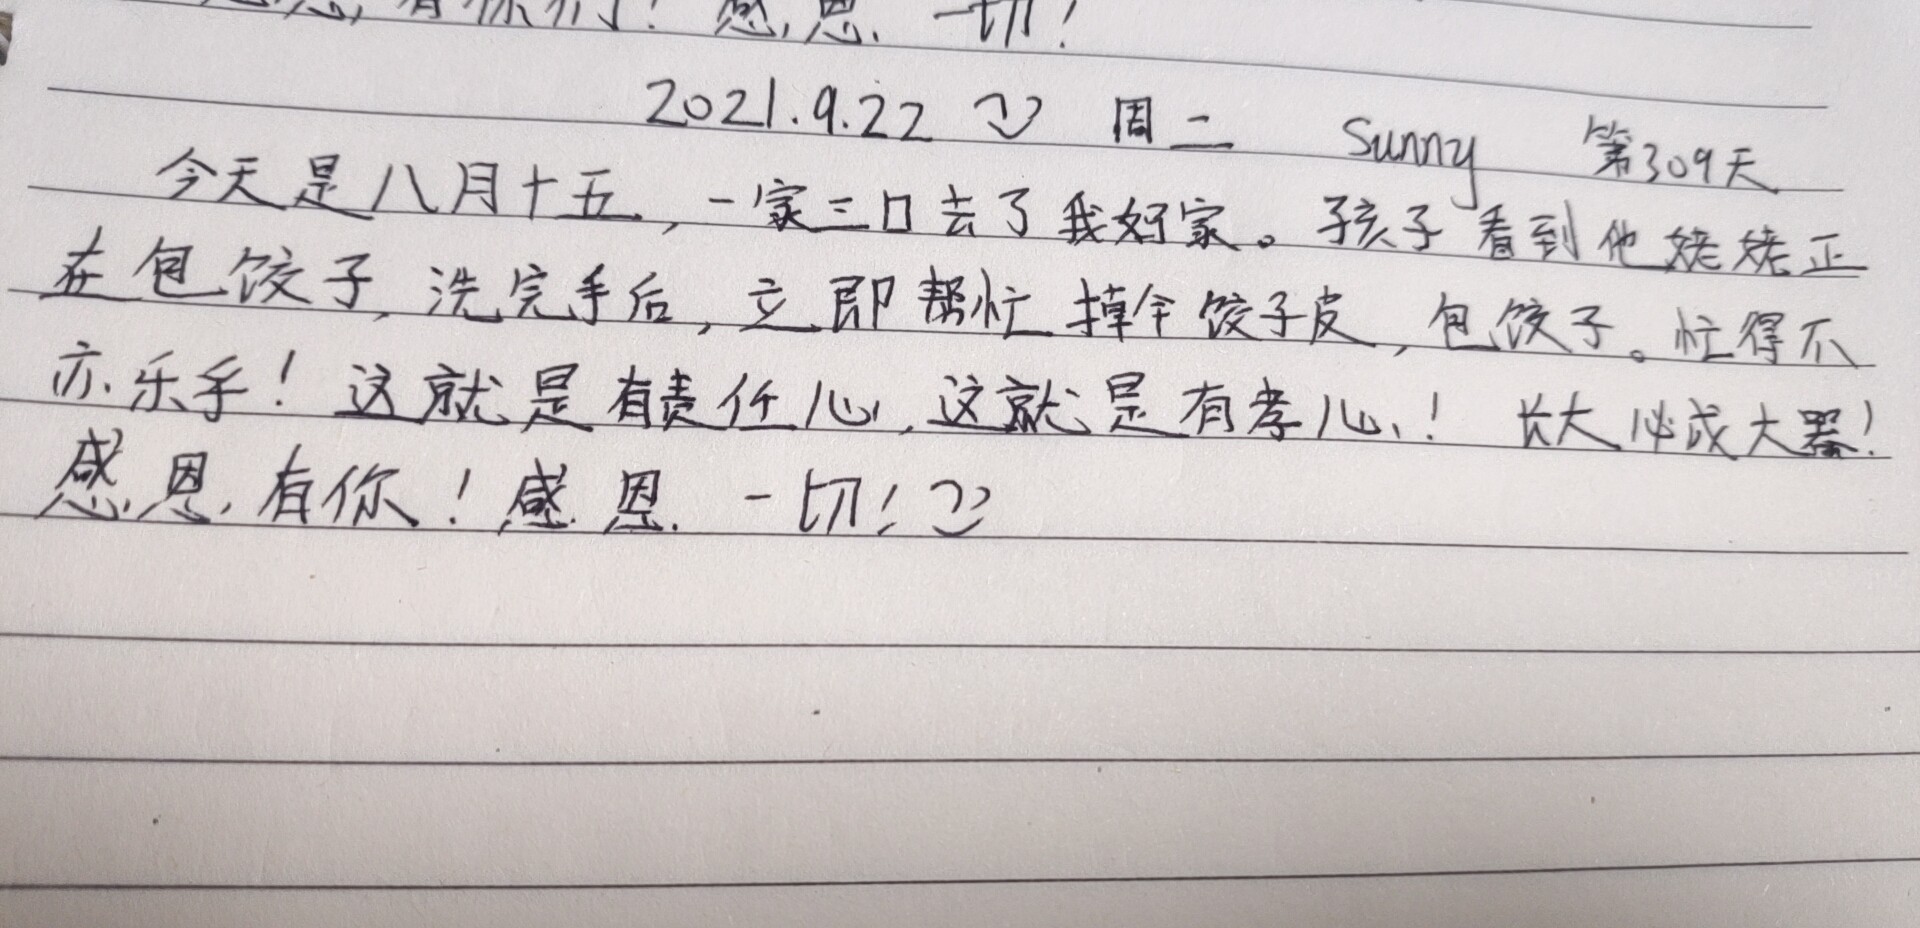 感恩有你们！感恩一切！
2021.9.22 周二 Sunny 第309天
今天是八月十五，一家三口去了我妈家。孩子看到他姥姥正
在包饺子，洗完手后，立即帮忙擀饺子皮，包饺子。忙得不
亦乐乎！这就是有责任心，这就是有孝心！长大必成大器！
感恩有你！感恩一切！